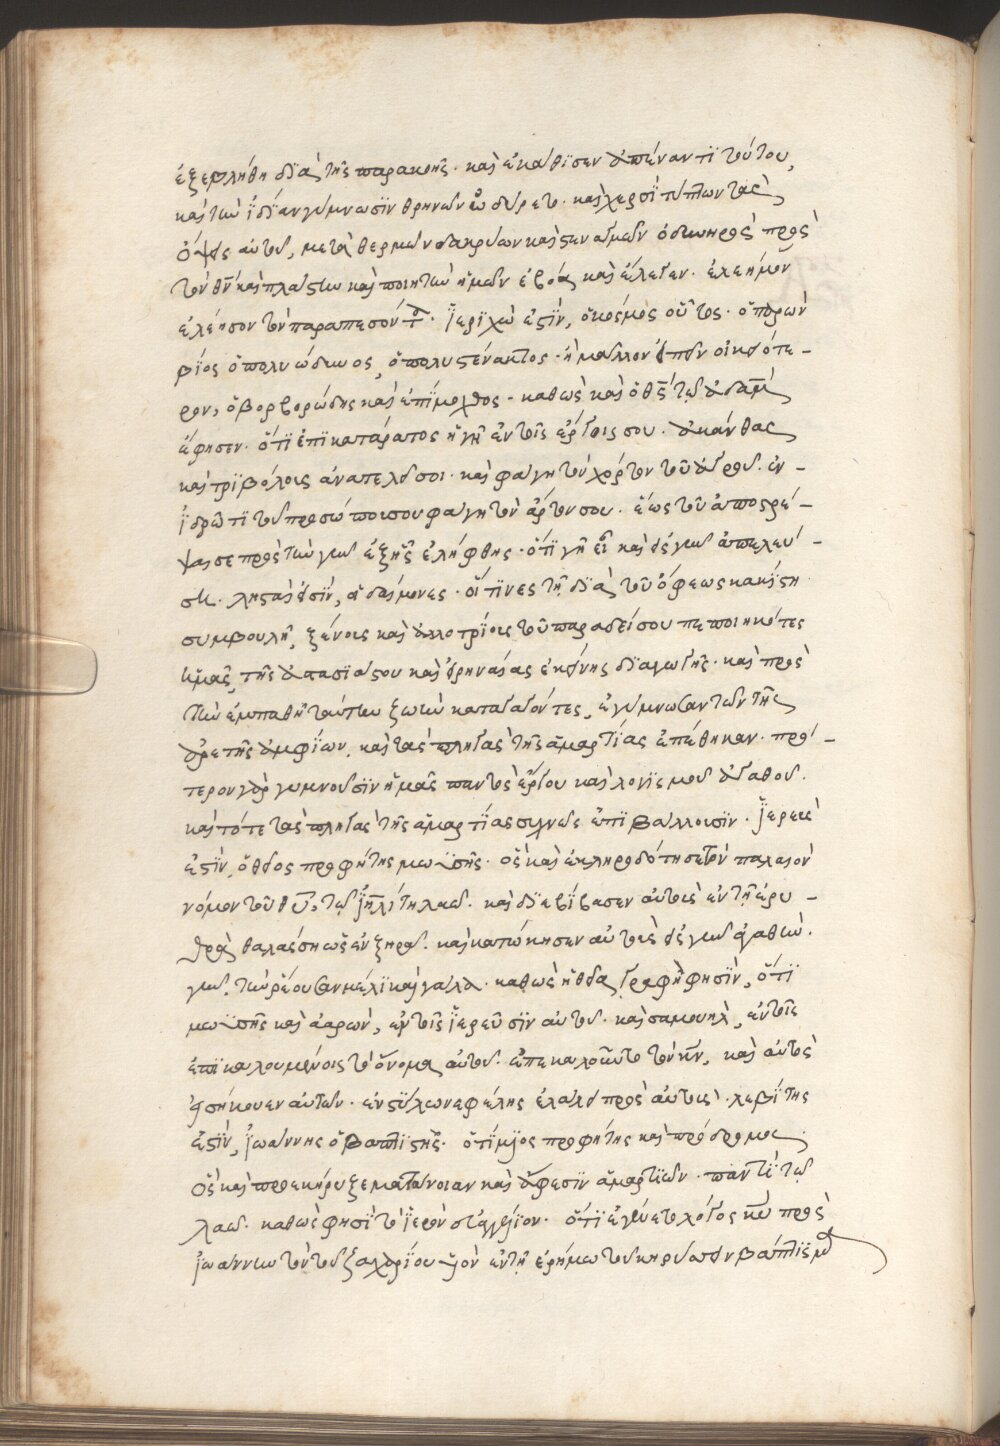 ἐξεβλήθη διὰ τῆς παρακοῆς· καὶ ἐκάθϊσεν ἀπέναντϊ τούτου,
καὶ τὴν ἰδίαν γύμνωσϊν θρηνῶν ὠδύρετο· καὶ χερσὶ τύπτων τὰς
ὄψεις αὐτοῦ, μετὰ θερμῶν δακρύων καὶ στεναγμῶν ὀδυνηρῶς πρὸς
τὸν θν̄ καὶ πλάστην καὶ ποιητὴν ἡμῶν ἐβόα καὶ ἔλεγεν· ἐλεήμον
ἐλέησον τὸν παραπεσόντα· ϊεριχὼ ἐστὶν, ὁ κόσμος οὗτος· ὁ παρὼν
βίος ὁ πολυώδυνος, ὁ πολυστένακτος· ἢ μᾶλλον εἰπεῖν οἰκειότε-
ρον, ὁ βορβορώδης καὶ ἐπίμοχθος· καθὼς καὶ ὁ θς̄ τῷ ἀδὰμ
ἔφησεν· ὅτϊ ἐπϊκατάρατος ἡ γῆ ἐν τοῖς ἔργοις σου· ἀκάνθας
καὶ τρϊβόλους ἀνατελεῖ σοι· καὶ φάγῃ τὸν χόρτον τοῦ ἀγροῦ· ἐν
ἱδρῶτϊ τοῦ προσώπου σου φάγῃ τὸν ἄρτον σου· ἕως τοῦ ἀποστρέ-
ψαι σε πρὸς τὴν γῆν ἐξ ἧς ἐλήφθης· ὅτϊ γῆ εἶ καὶ εἰς γῆν ἀπελεύ-
σῃ· λῃσταὶ εἰσϊν, οἱ δαίμονες· οἵτϊνες τῇ διὰ τοῦ ὄφεως κακίστῃ
συμβουλῇ, ξένους καὶ ἀλλοτρίους τοῦ παραδείσου πεποιηκότες
ἡμᾶς, τῆς ἀστασϊάστου καὶ εἰρηναίας ἐκείνης διαγωγῆς· καὶ πρὸς
τὴν ἐμπαθῆ ταύτην ζωὴν καταγαγόντες, ἐγύμνωσαν τῶν τῆς
ἀρετῆς ἀμφίων, καὶ τὰς πληγὰς τῆς ἁμαρτίας ἐπέθηκαν· πρό-
τερον γὰρ γυμνοῦσϊν ἡμᾶς παντὸς ἔργου καὶ λογϊσμοῦ ἀγαθοῦ·
καὶ τότε τὰς πληγὰς τῆς ἁμαρτϊας συχνῶς ἐπϊβάλλουσϊν· ϊερεὺς
ἐστὶν, ὁ θεῖος προφήτης μωϋσῆς· ὃς καὶ ἐκληροδότησε τὸν παλαιὸν
νόμον τοῦ θῡ, τῷ ϊηλίτῃ λαῷ· καὶ διεβίβασεν αὐτοὺς ἐν τῇ ἐρυ-
θρᾷ θαλάσσῃ ὡς ἐν ξηρᾷ· καὶ κατῴκησεν αὐτοὺς εἰς γῆν ἀγαθὴν·
γῆν, τὴν ῥέουσαν μέλϊ καὶ γάλα· καθὼς ἡ θεία γραφὴ φησϊν, ὅτϊ
μωϋσῆς καὶ ἀαρὼν, ἐν τοῖς ϊερεῦσϊν αὐτοῦ· καὶ σαμουὴλ, ἐν τοῖς
ἐπϊκαλουμένοις τὸ ὄνομα αὐτοῦ· ἐπεκαλοῦντο τὸν κν̄, καὶ αὐτὸς
εἰσήκουεν αὐτῶν· ἐν στύλῳ νεφέλης ἐλάλει πρὸς αὐτοὺς· λεβΐτης
ἐστὶν, ἰωάννης ὁ βαπτϊστὴς· ὁ τίμϊος προφήτης καὶ πρόδρομος·
ὃς καὶ προεκήρυξε μετάνοιαν καὶ ἄφεσϊν ἁμαρτϊῶν· παντὶ τῷ
λαῷ· καθὼς φησὶ τὸ ϊερὸν εὐαγγέλϊον· ὅτϊ ἐγένετο λόγος κῡ πρὸς
ἰωάννην τὸν τοῦ ζαχαρίου υἱὸν ἐν τῇ ἐρήμῳ τοῦ κηρύσσειν βάπτϊσμα